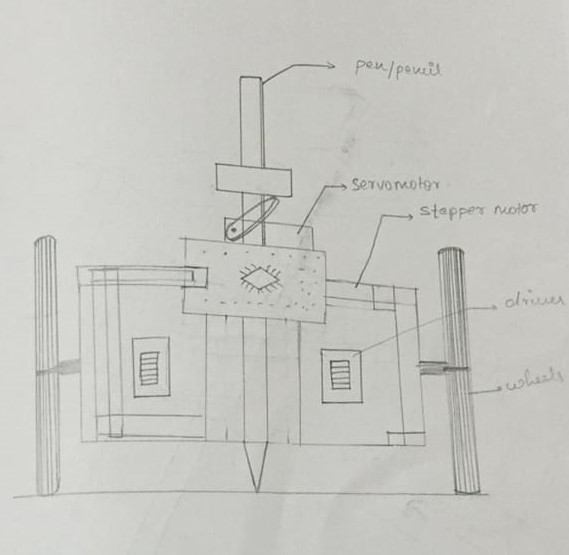 pen/pencil
servomotor
stepper motor
driver
wheels